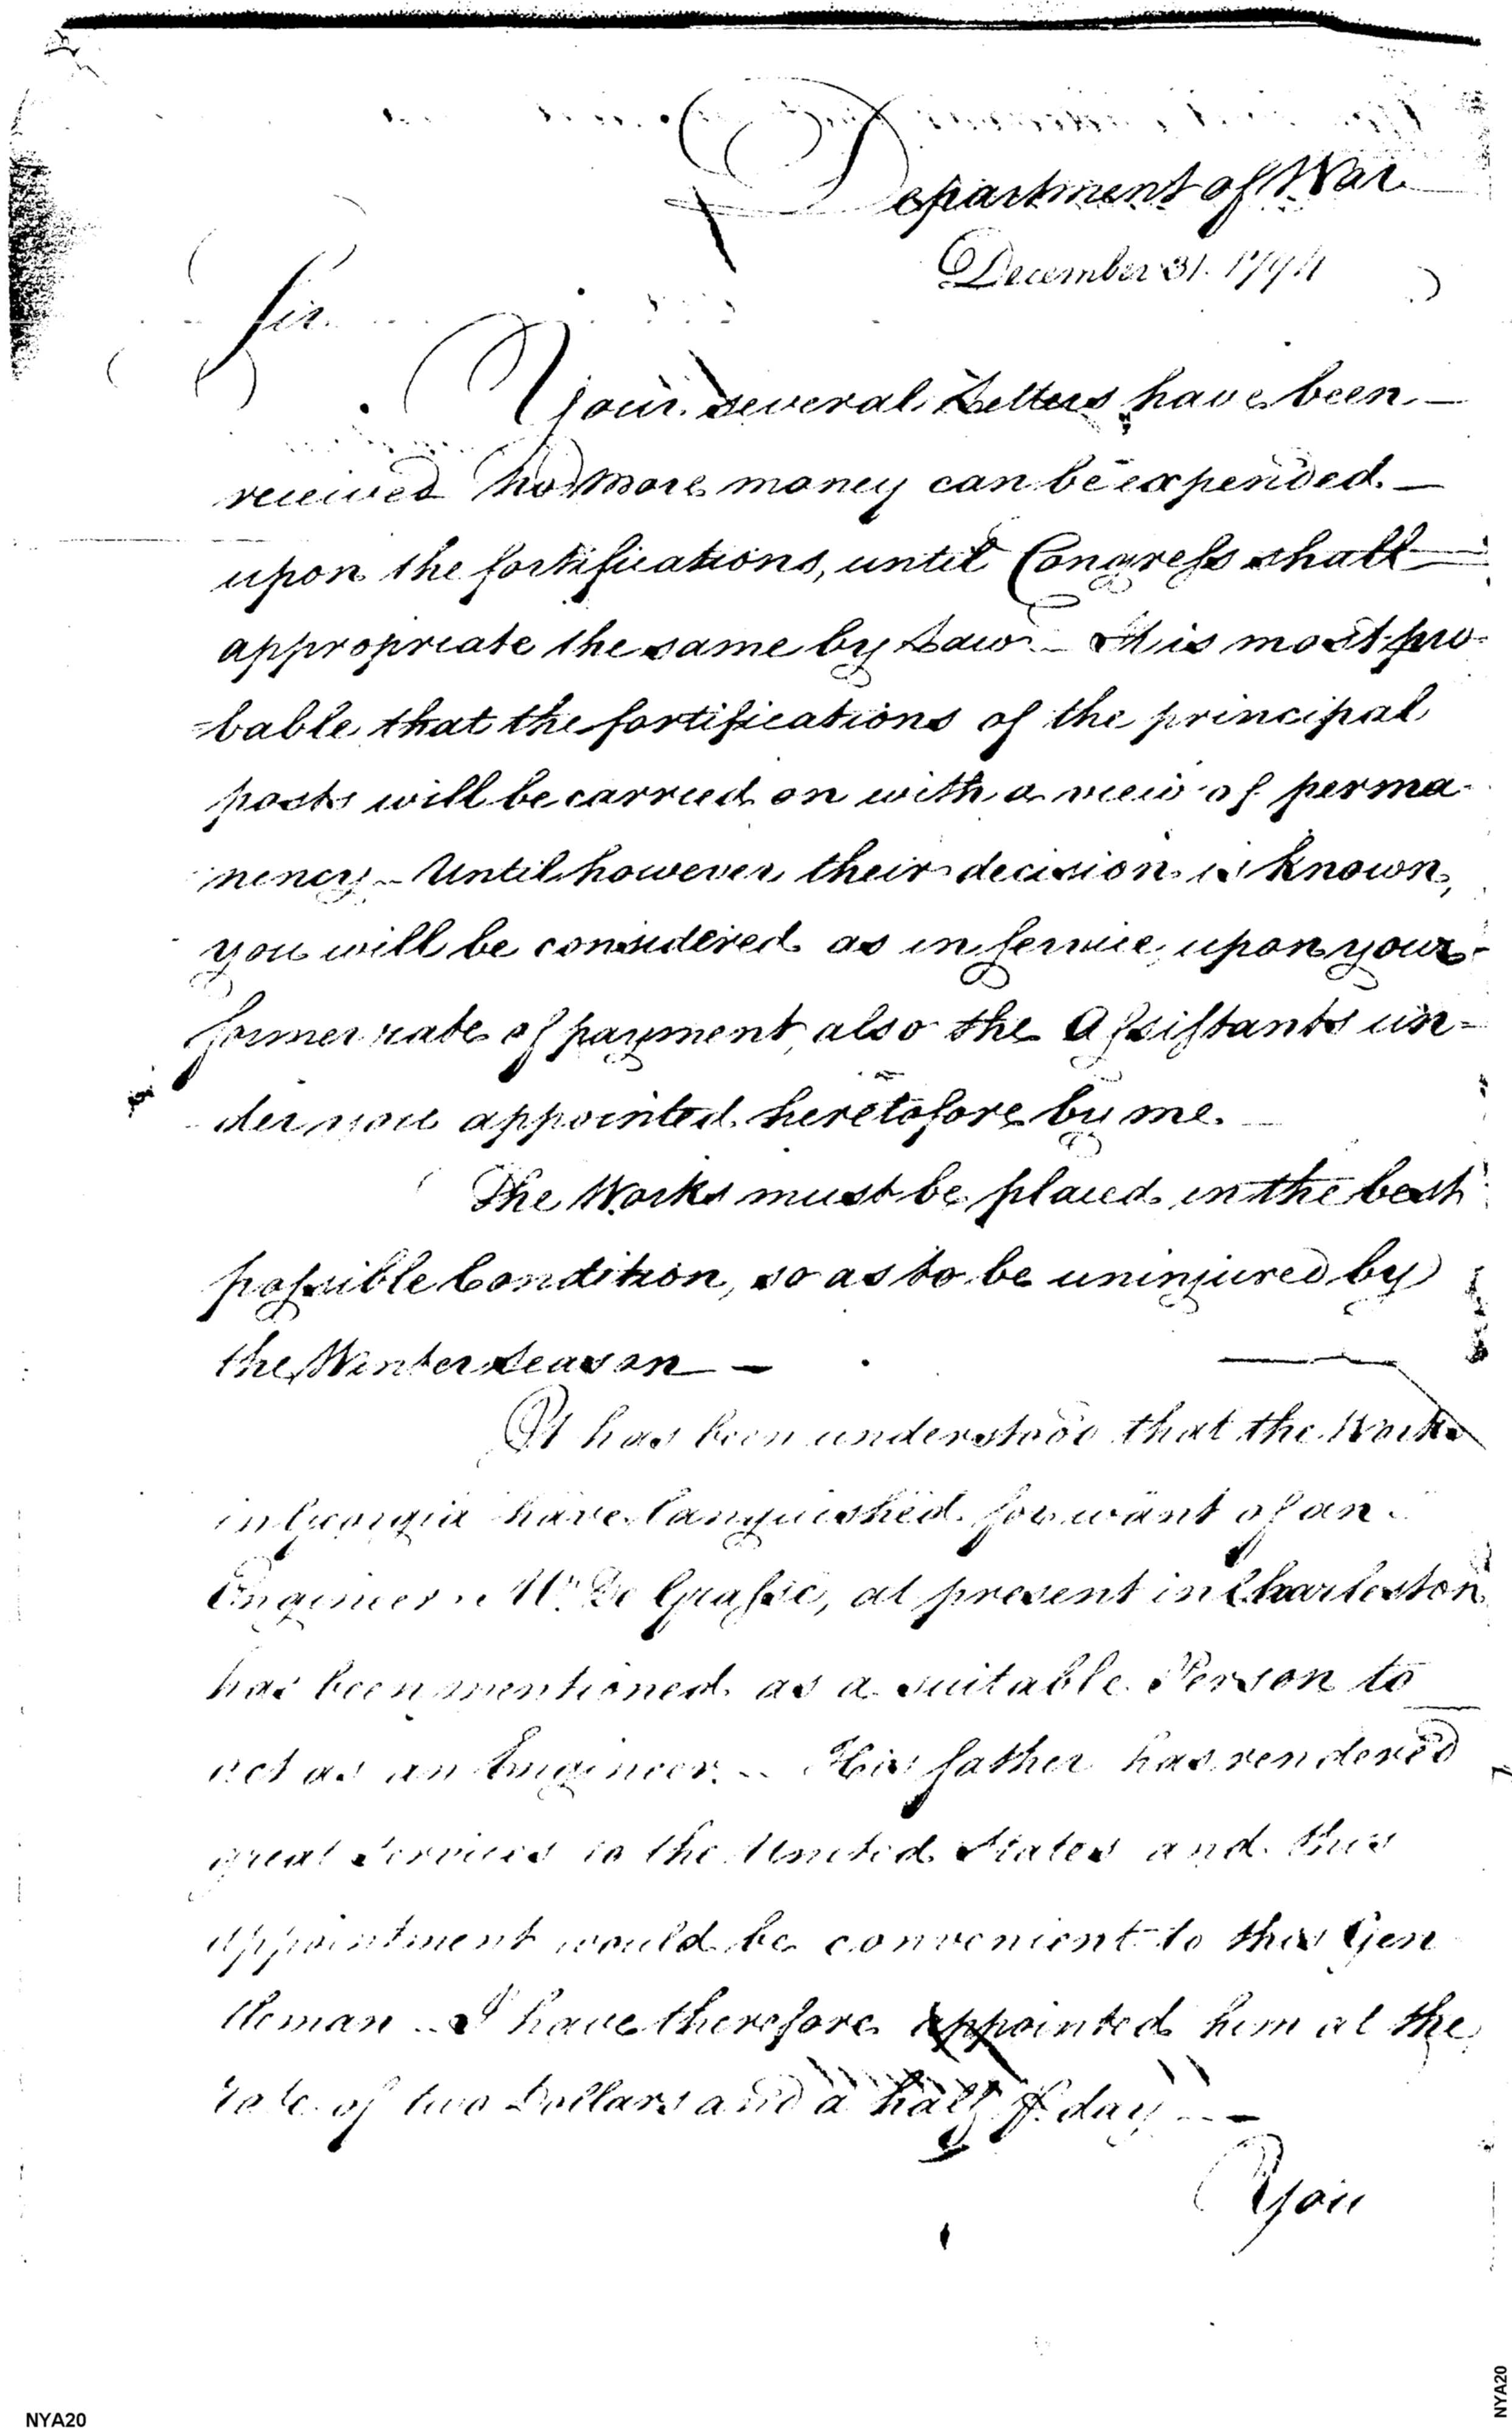 Department of War
December 31. 1794
Sir.
Your several Letters have been —
received no more money can be expended. —
upon the fortifications, until Congress shall —
appropriate the same by Law — It is most pro-
=bable that the fortifications of the principal
posts will be carried on with a view of perma-
nency — Until however their decision is known,
you will be considered as in service, upon your
former rate of payment, also the Assistants un-
der you appointed heretofore by me. —
The Works must be placed in the best
possible Condition, so as to be uninjured by
the Winter season —
It has been understood that the Works
in Georgia have languished for want of an
Engineer. Mr. De Grasse, at present in Charleston
has been mentioned as a suitable Person to
act as an Engineer. — His father has rendered
great services to the United States and this
appointment would be convenient to this Gen
tleman — I have therefore appointed him at the
rate of two Dollars and a half ⅌ day —
You
NYA20
NYA20